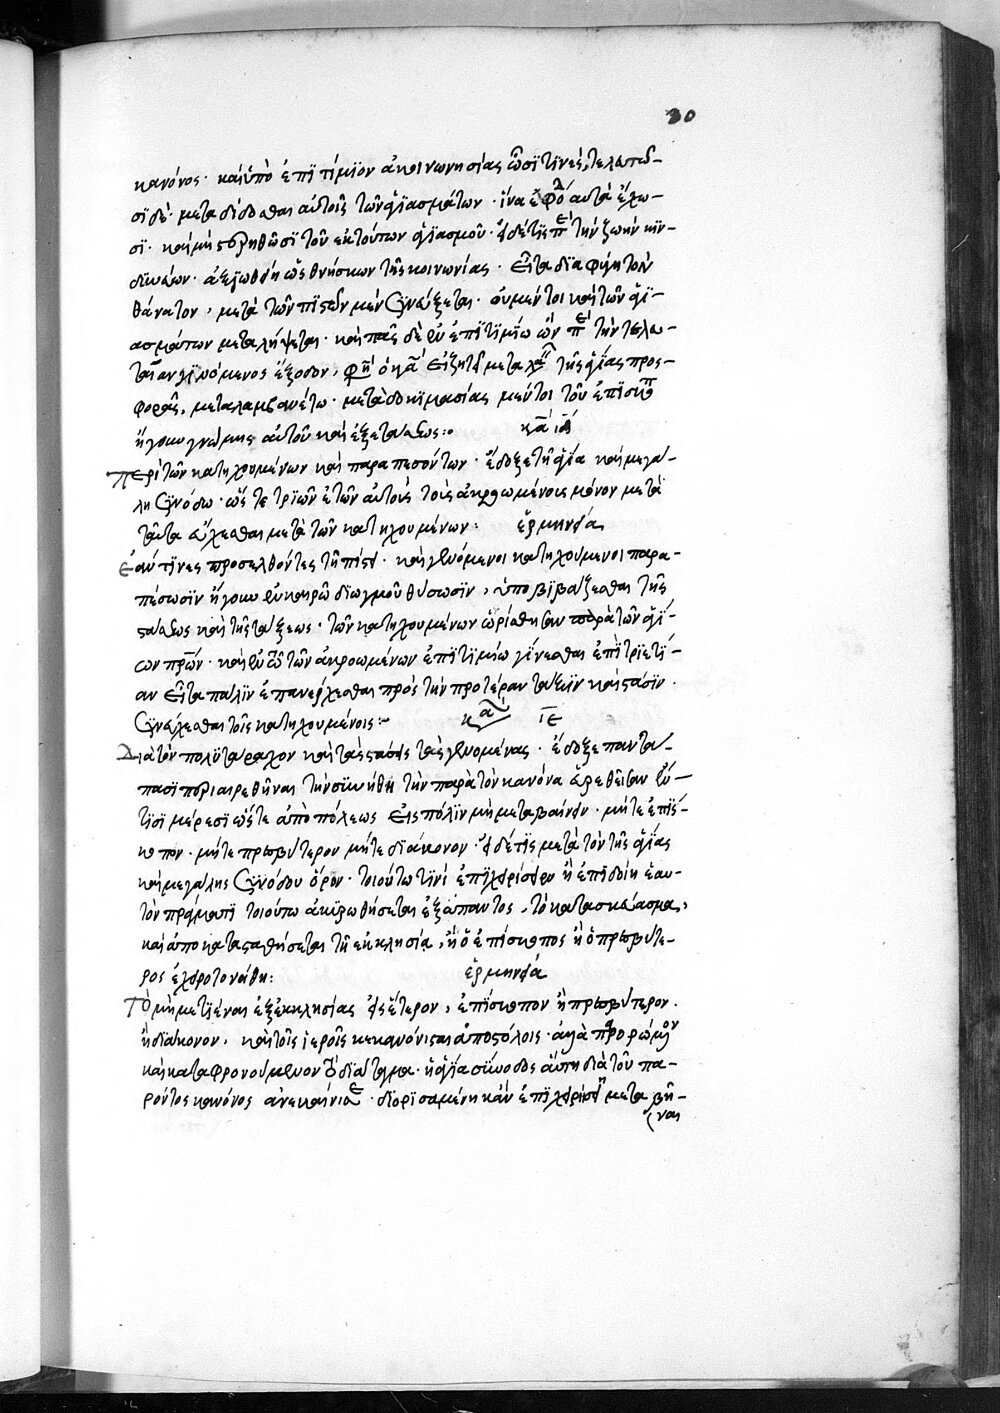 30
κανόνος· καὶ ὑπὸ ἐπιτίμιον ἀκοινωνησίας ὦσί τινες,
σι δὲ· μεταδίδοσθαι αὐτοῖς τῶν ἁγιασμάτων· ἵνα ἐφόδιον αὐτὰ ἔχω-
σι· καὶ μὴ στερηθῶσι τοῦ ἐκ τούτων ἁγιασμοῦ· εἰ δέ τις περὶ τὴν ζωὴν κιν-
δυνεύων· ἀξιωθῆ ὡς θνήσκων τῆς κοινωνίας· εἶτα διαφύγη τὸν
θάνατον, μετὰ τῶν πιστῶν μὲν συνεύξεται· οὐ μέντοι καὶ τῶν ἁγι-
ασμάτων μεταλήψεται· καὶ πᾶς δὲ ἐν ἐπιτιμίω ὢν περὶ τὴν τελευ-
ταίαν γινόμενος ἔξοδον, φησὶ ὁ κανὼν εἰ ζητεῖ μεταλαβεῖν τῆς ἁγίας προς-
φορᾶς, μεταλαμβανέτω· μετὰ δοκιμασίας μέντοι τοῦ ἐπισκόπου
ἤγουν γνώμης αὐτοῦ καὶ ἐξετάσεως:· κανὼν ιδ
Περὶ τῶν κατηχουμένων καὶ παραπεσόντων· ἔδοξε τῆ ἁγία καὶ μεγά-
λη συνόδω· ὥς τε τριῶν ἐτῶν αὐτοὺς τοὺς ἀκροωμένους μόνον μετὰ
ταῦτα εὔχεσθαι μετὰ τῶν κατηχουμένων: ἑρμηνεία
Ἐάν τινες προσελθόντες τῆ πίστει· καὶ γενόμενοι κατηχούμενοι παρα-
πέσωσιν ἤγουν ἐν καιρῶ διωγμοῦ θύσωσιν, ὑποβιβάζεσθαι τῆς
στάσεως καὶ τῆς τάξεως· τῶν κατηχουμένων ὡρίσθησαν παρὰ τῶν ἁγί-
ων πατέρων· καὶ ἐν τῶ τῶν ἀκροωμένων ἐπιτιμίω γίνεσθαι ἐπὶ τριετί-
αν εἶτα πάλιν ἐπανέρχεσθαι πρὸς τὴν προτέραν τάξιν καὶ στάσιν·
συνεύχεσθαι τοῖς κατηχουμένοις:- κανὼν ιε
Διὰ τὸν πολὺ τάραχον καὶ τὰς στάσεις τὰς γενομένας· ἔδοξε παντά-
πασι περιαιρεθῆναι τὴν συνήθειαν τὴν παρὰ τὸν κανόνα εὑρεθεῖσαν ἔν-
τισι μέρεσι ὥς τε ἀπὸ πόλεως εἰς πόλιν μὴ μεταβαίνειν· μήτε ἐπίς-
κοπον· μήτε πρεσβύτερον μήτε διάκονον· εἰ δέ τις μετὰ τὸν τῆς ἁγίας
καὶ μεγάλης συνόδου ὅρον· τοιούτω τινὶ ἐπιχειρήσειεν ἢ ἐπιδοίη ἑαυ-
τὸν πράγματι τοιούτω ἀκυρωθήσεται ἐξάπαντος, τὸ κατασκεύασμα,
καὶ ἀποκατασταθήσεται τῆ ἐκκλησία, ἧ ὁ ἐπίσκοπος ἢ ὁ πρεσβύτε-
ρος ἐχειροτονήθη: ἑρμηνεία
Τὸ μὴ μετιέναι ἐξ ἐκκλησίας εἰς ἕτερον, ἐπίσκοπον ἢ πρεσβύτερον·
ἢ διάκονον, καὶ τοῖς ἱεροῖς κεκανόνισται ἀποστόλοις· ἀλλὰ
καὶ καταφρονούμενον τὸ διάταγμα· ἡ ἁγία σύνοδος αὕτη διὰ τοῦ πα-
ρόντος κανόνος ἀνεκαίνισε· διορισαμένη κἂν ἐπιχειρήσει μεταβῆ-
ναι